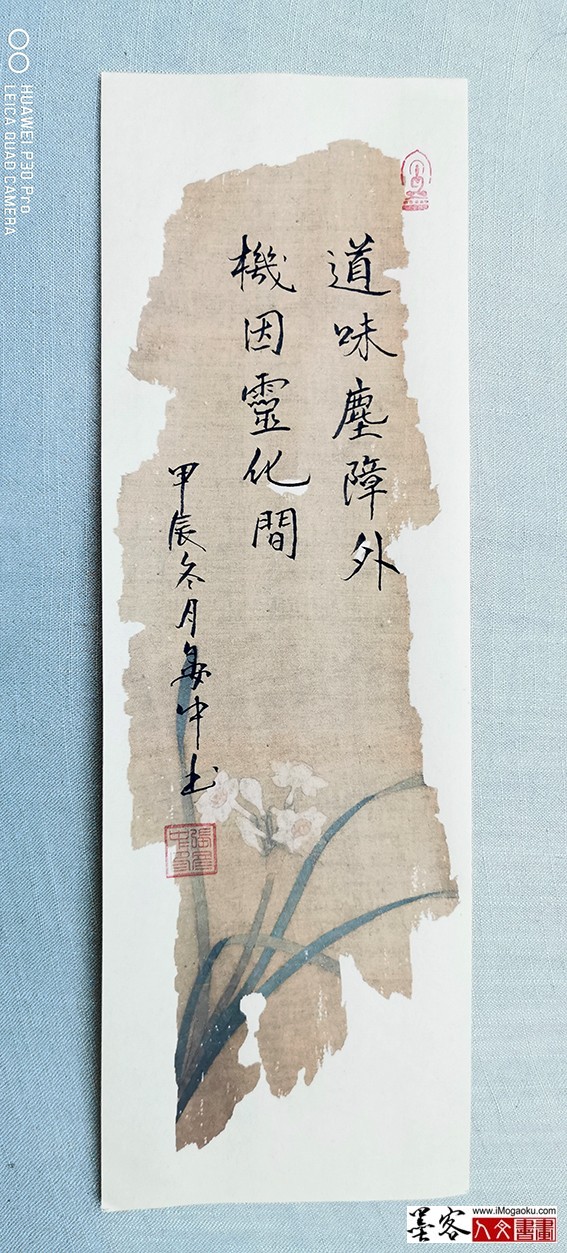 道味塵障外
機因靈化間
甲辰冬月每中书
HUAWEI P30 Pro
LEICA QUAD CAMERA
墨客
www.iMogaoku.com
人文書畫